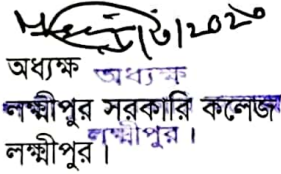 অধ্যক্ষ অধ্যক্ষ
লক্ষ্মীপুর সরকারি কলেজ
লক্ষ্মীপুর।
লক্ষ্মীপুর।